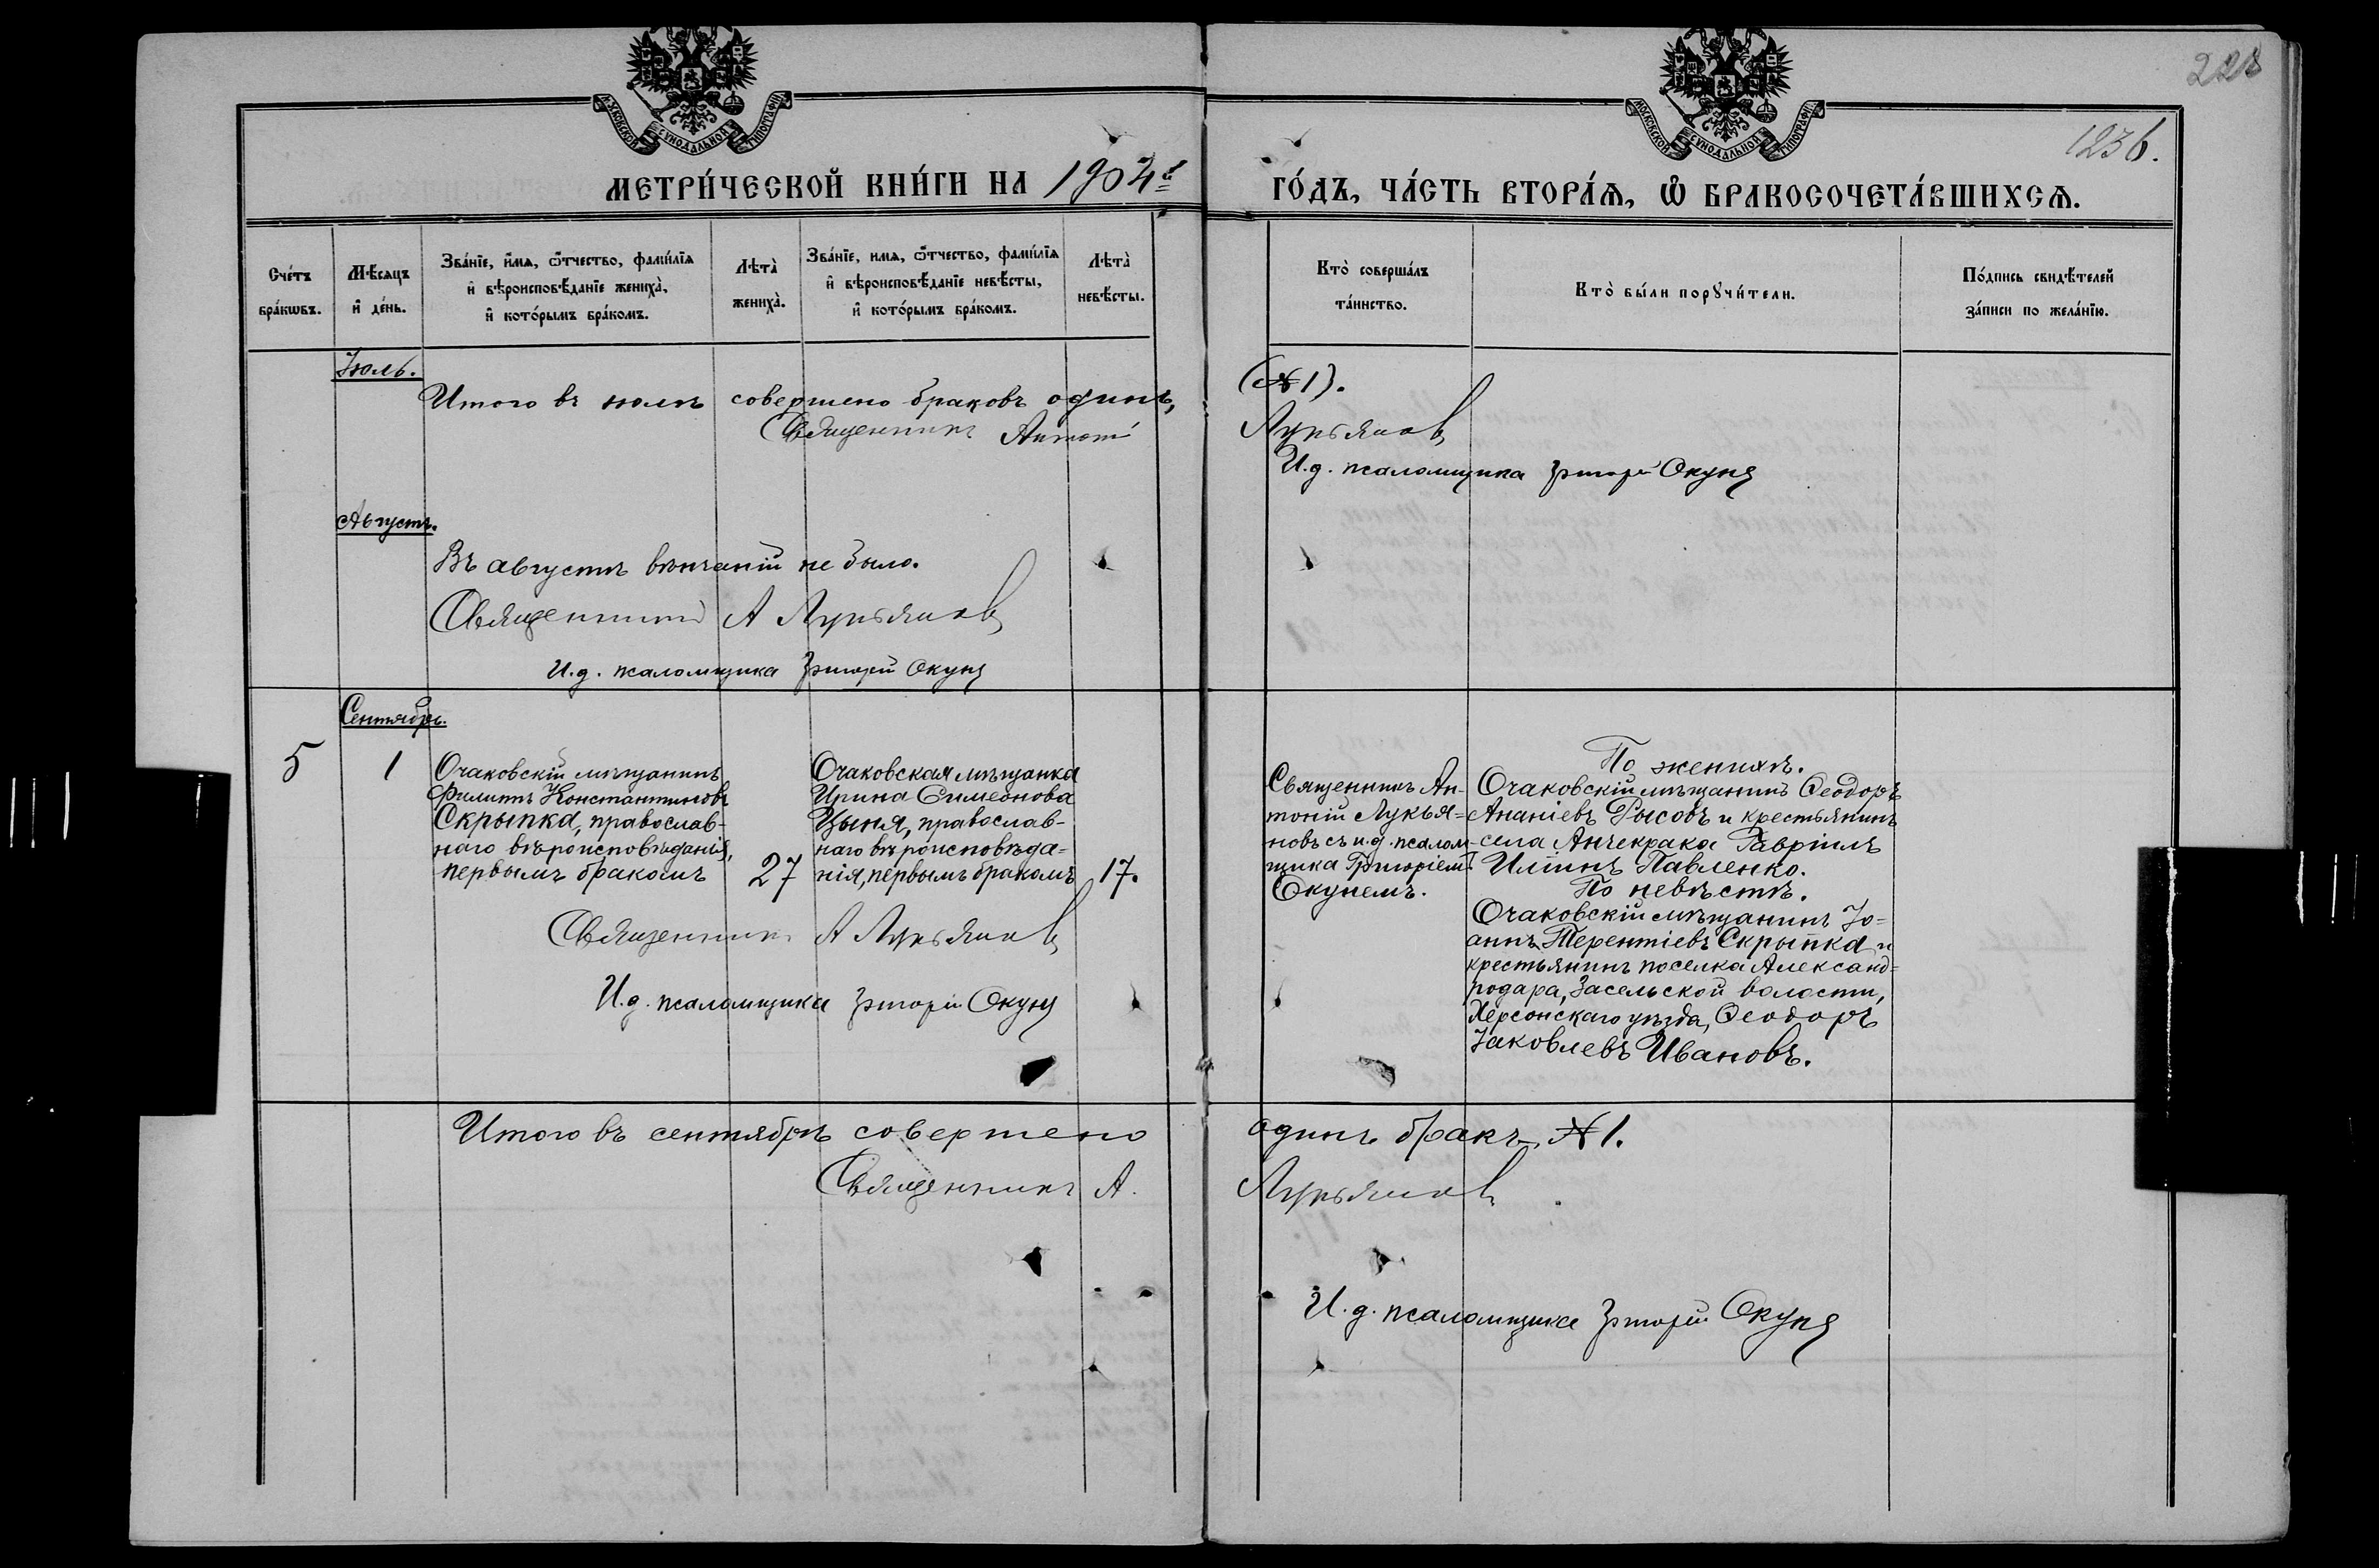 228
1236.
МОСКОВСКОЙ СѴНОДАЛЬНОЙ ТИПОГРАФІИ
МОСКОВСКОЙ СѴНОДАЛЬНОЙ ТИПОГРАФІИ
МЕТРИ́ЧЕСКОЙ КНИ́ГИ НА 1904й
ГО́ДЪ, ЧА́СТЬ ВТОРА́Ѧ, Ѽ БРАКОСОЧЕТА́ВШИХСѦ.
Сче́тъ бра́кѡвъ.
Мѣ́сѧцъ и҆ де́нь.
Зва́нїе, и҆́мѧ, ѻ҆́тчество, фами́лїѧ и҆ вѣроисповѣ́данїе жениха̀, и҆ кото́рымъ бра́комъ.
Лѣта̀ жениха̀.
Зва́нїе, имѧ, ѻ҆́тчество, фами́лїѧ и҆ вѣроисповѣ́данїе невѣ́сты, и҆ кото́рымъ бра́комъ.
Лѣта̀ невѣ́сты.
Кто̀ соверша́лъ та́инство.
Кто̀ бы́ли порꙋчи́тели.
По́дпись свидѣ́телей за́писи по жела́нїю.
Іюль.
Итого въ іюлѣ совершено браковъ одинъ,
(№ 1).
Священникъ Антоній
Лукьяновъ
И. д. псаломщика Григорій Окунь
Августъ.
Въ августѣ вѣнчаній не было.
Священникъ А Лукьяновъ
И. д. псаломщика Григорій Окунь
Сентябрь.
5
1
Очаковскій мѣщанинъ
Филиппъ Константиновъ
Скрыпка, православ-
наго вѣроисповѣданія,
первымъ бракомъ
27
Очаковская мѣщанка
Ирина Симеонова
Цыня, православ-
наго вѣроисповѣда=
нія, первымъ бракомъ
17.
Священникъ Ан-
тоній Лукья=
новъ съ и. д. псалом-
щика Григоріемъ
Окунемъ.
По женихѣ.
Очаковскій мѣщанинъ Ѳеодоръ
Ананіевъ Рысовъ и крестьянинъ
села Анчекрака Гавріилъ
Иліинъ Павленко.
По невѣстѣ.
Очаковскій мѣщанинъ Іо=
аннъ Терентіевъ Скрыпка и
крестьянинъ поселка Александ=
родара, Засельской волости,
Херсонскаго уѣзда, Ѳеодоръ
Іаковлевъ Ивановъ.
Священникъ А Лукьяновъ
И. д. псаломщика Григорій Окунь
Итого въ сентябрѣ совершено
одинъ бракъ, № 1.
Священникъ А.
Лукьяновъ
И. д. псаломщика Григорій Окунь